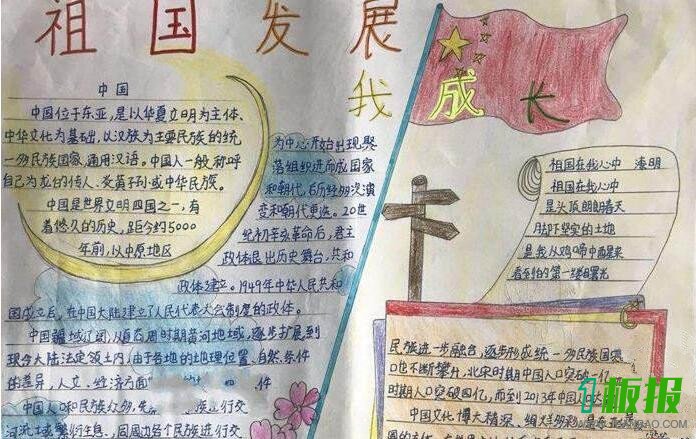 祖国发展
我成长
中国
中国位于东亚，是以华夏文明为主体、
中华文化为基础，以汉族为主要民族的统
一多民族国家，通用汉语。中国人一般称呼
自己为龙的传人、炎黄子孙或中华民族。
中国是世界文明四国之一，有
着悠久的历史，距今约5000
年前，以中原地区
为中心开始出现聚
落组织进而成国家
和朝代，后历经多次演
变和朝代更迭。20世
纪初辛亥革命后，君主
政体退出历史舞台，共和
政体建立。1949年中华人民共和
国成立后，在中国大陆建立了人民代表大会制度的政体。
中国疆域辽阔，从西周时期黄河地域，逐步扩展到
现今大陆法定领土内，由于各地的地理位置、自然条件
的差异，人文、经济方面
件
中国人口和民族众多，先
族，进行交
河流域繁衍生息，同周边各个民族进行交
祖国在我心中 海明
祖国在我心中
是头顶朗朗春天
脚下坚实的土地
是我从鸡鸣中西望来
看到的第一缕曙光
民族进一步融合，逐步形成统一多民族国家
口也不断攀升，北宋时期中国人口突破一亿
时期人口突破四亿，而到2013年中国大
中国文化博大精深、绚烂多彩，是东
板报